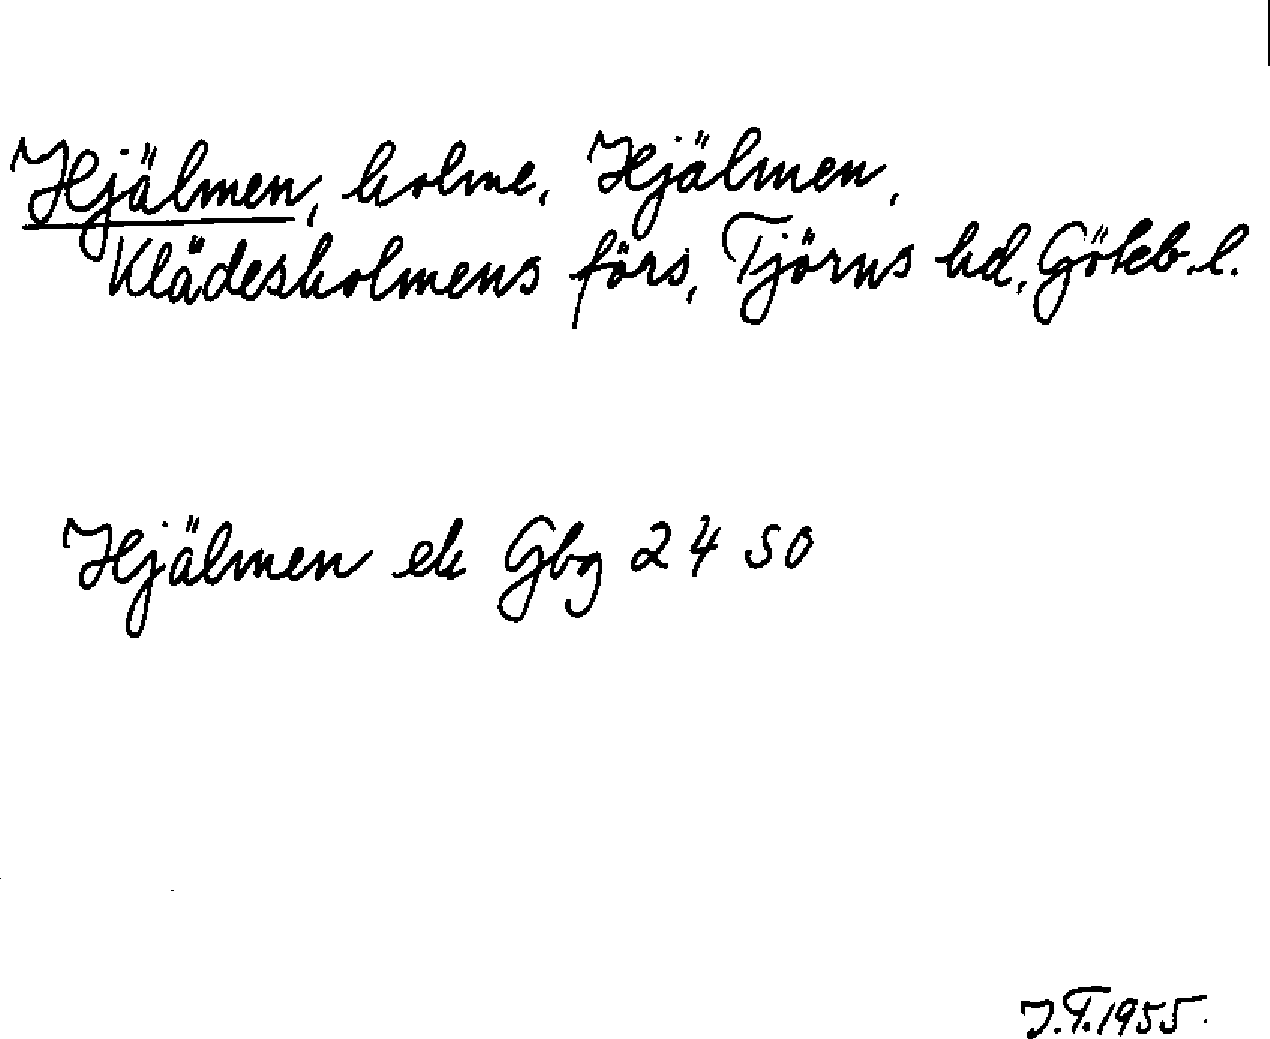 Hjälmen, holme, Hjälmen,
Klädesholmens förs, Tjörns hd, Göteb. l.
Hjälmen ek Gbg 24 50
J.T. 1955.